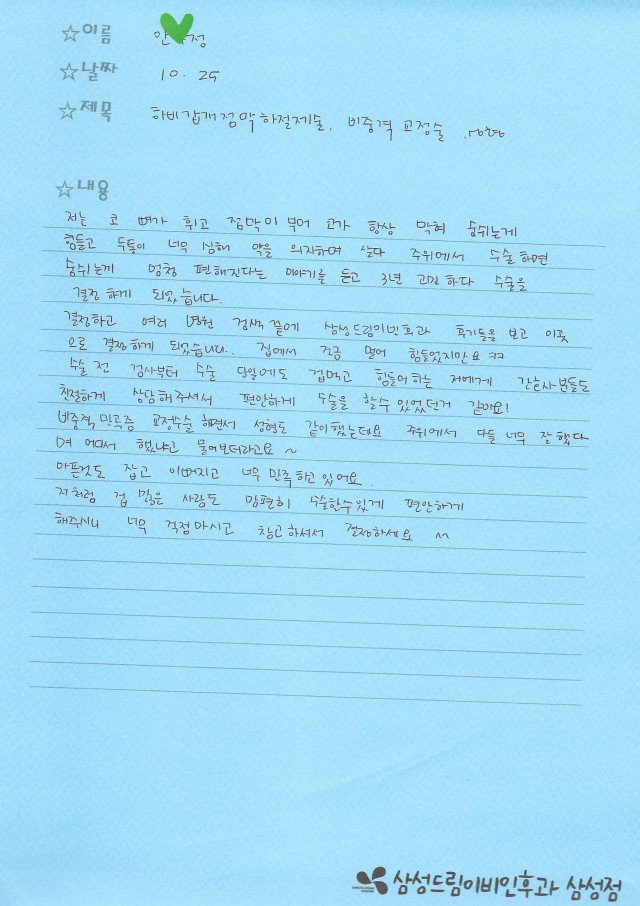 ☆이름 안 정
☆날짜 10. 25
☆제목 하비갑개점막하절제술, 비중격 교정술
☆내용
저는 코 뼈가 휘고 점막이 부어 코가 항상 막혀 숨쉬는게
힘들고 두통이 너무 심해 약을 의지하며 살다 주위에서 수술하면
숨쉬는게 엄청 편해진다는 이야기를 듣고 3년 고민하다 수술을
결정하게 되었습니다.
결정하고 여러 병원 검색 끝에 삼성드림이빈후과 후기들을 보고 이곳
으로 결정하게 되었습니다.. 집에서 조금 멀어 힘들었지만요 ㅋㅋ
수술 전 검사부터 수술 당일에도 겁먹고 힘들어하는 저에게 간호사분들도
친절하게 상담해주셔서 편안하게 수술을 할수 있었던거 같아요!
비중격만곡증 교정수술 해면서 성형도 같이했는데요 주위에서 다들 너무 잘했다
며 어디서 했냐고 물어보더라고요~
아픈것도 잡고 이뻐지고 너무 만족하고 있어요.
저처럼 겁 많은 사람도 맘편히 수술할수있게 편안하게
해주시니 너무 걱정마시고 참고하셔서 결정하세요 ~
삼성드림이비인후과 삼성점